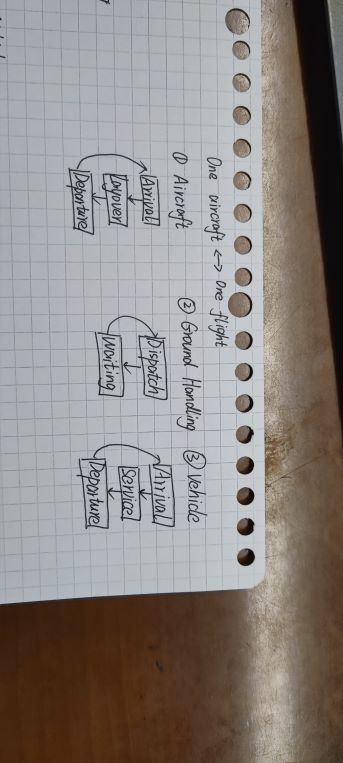 One aircraft ↔ One flight
① Aircraft
Arrival
Layover
Departure
② Ground Handling
Dispatch
Waiting
③ Vehicle
Arrival
Service
Departure